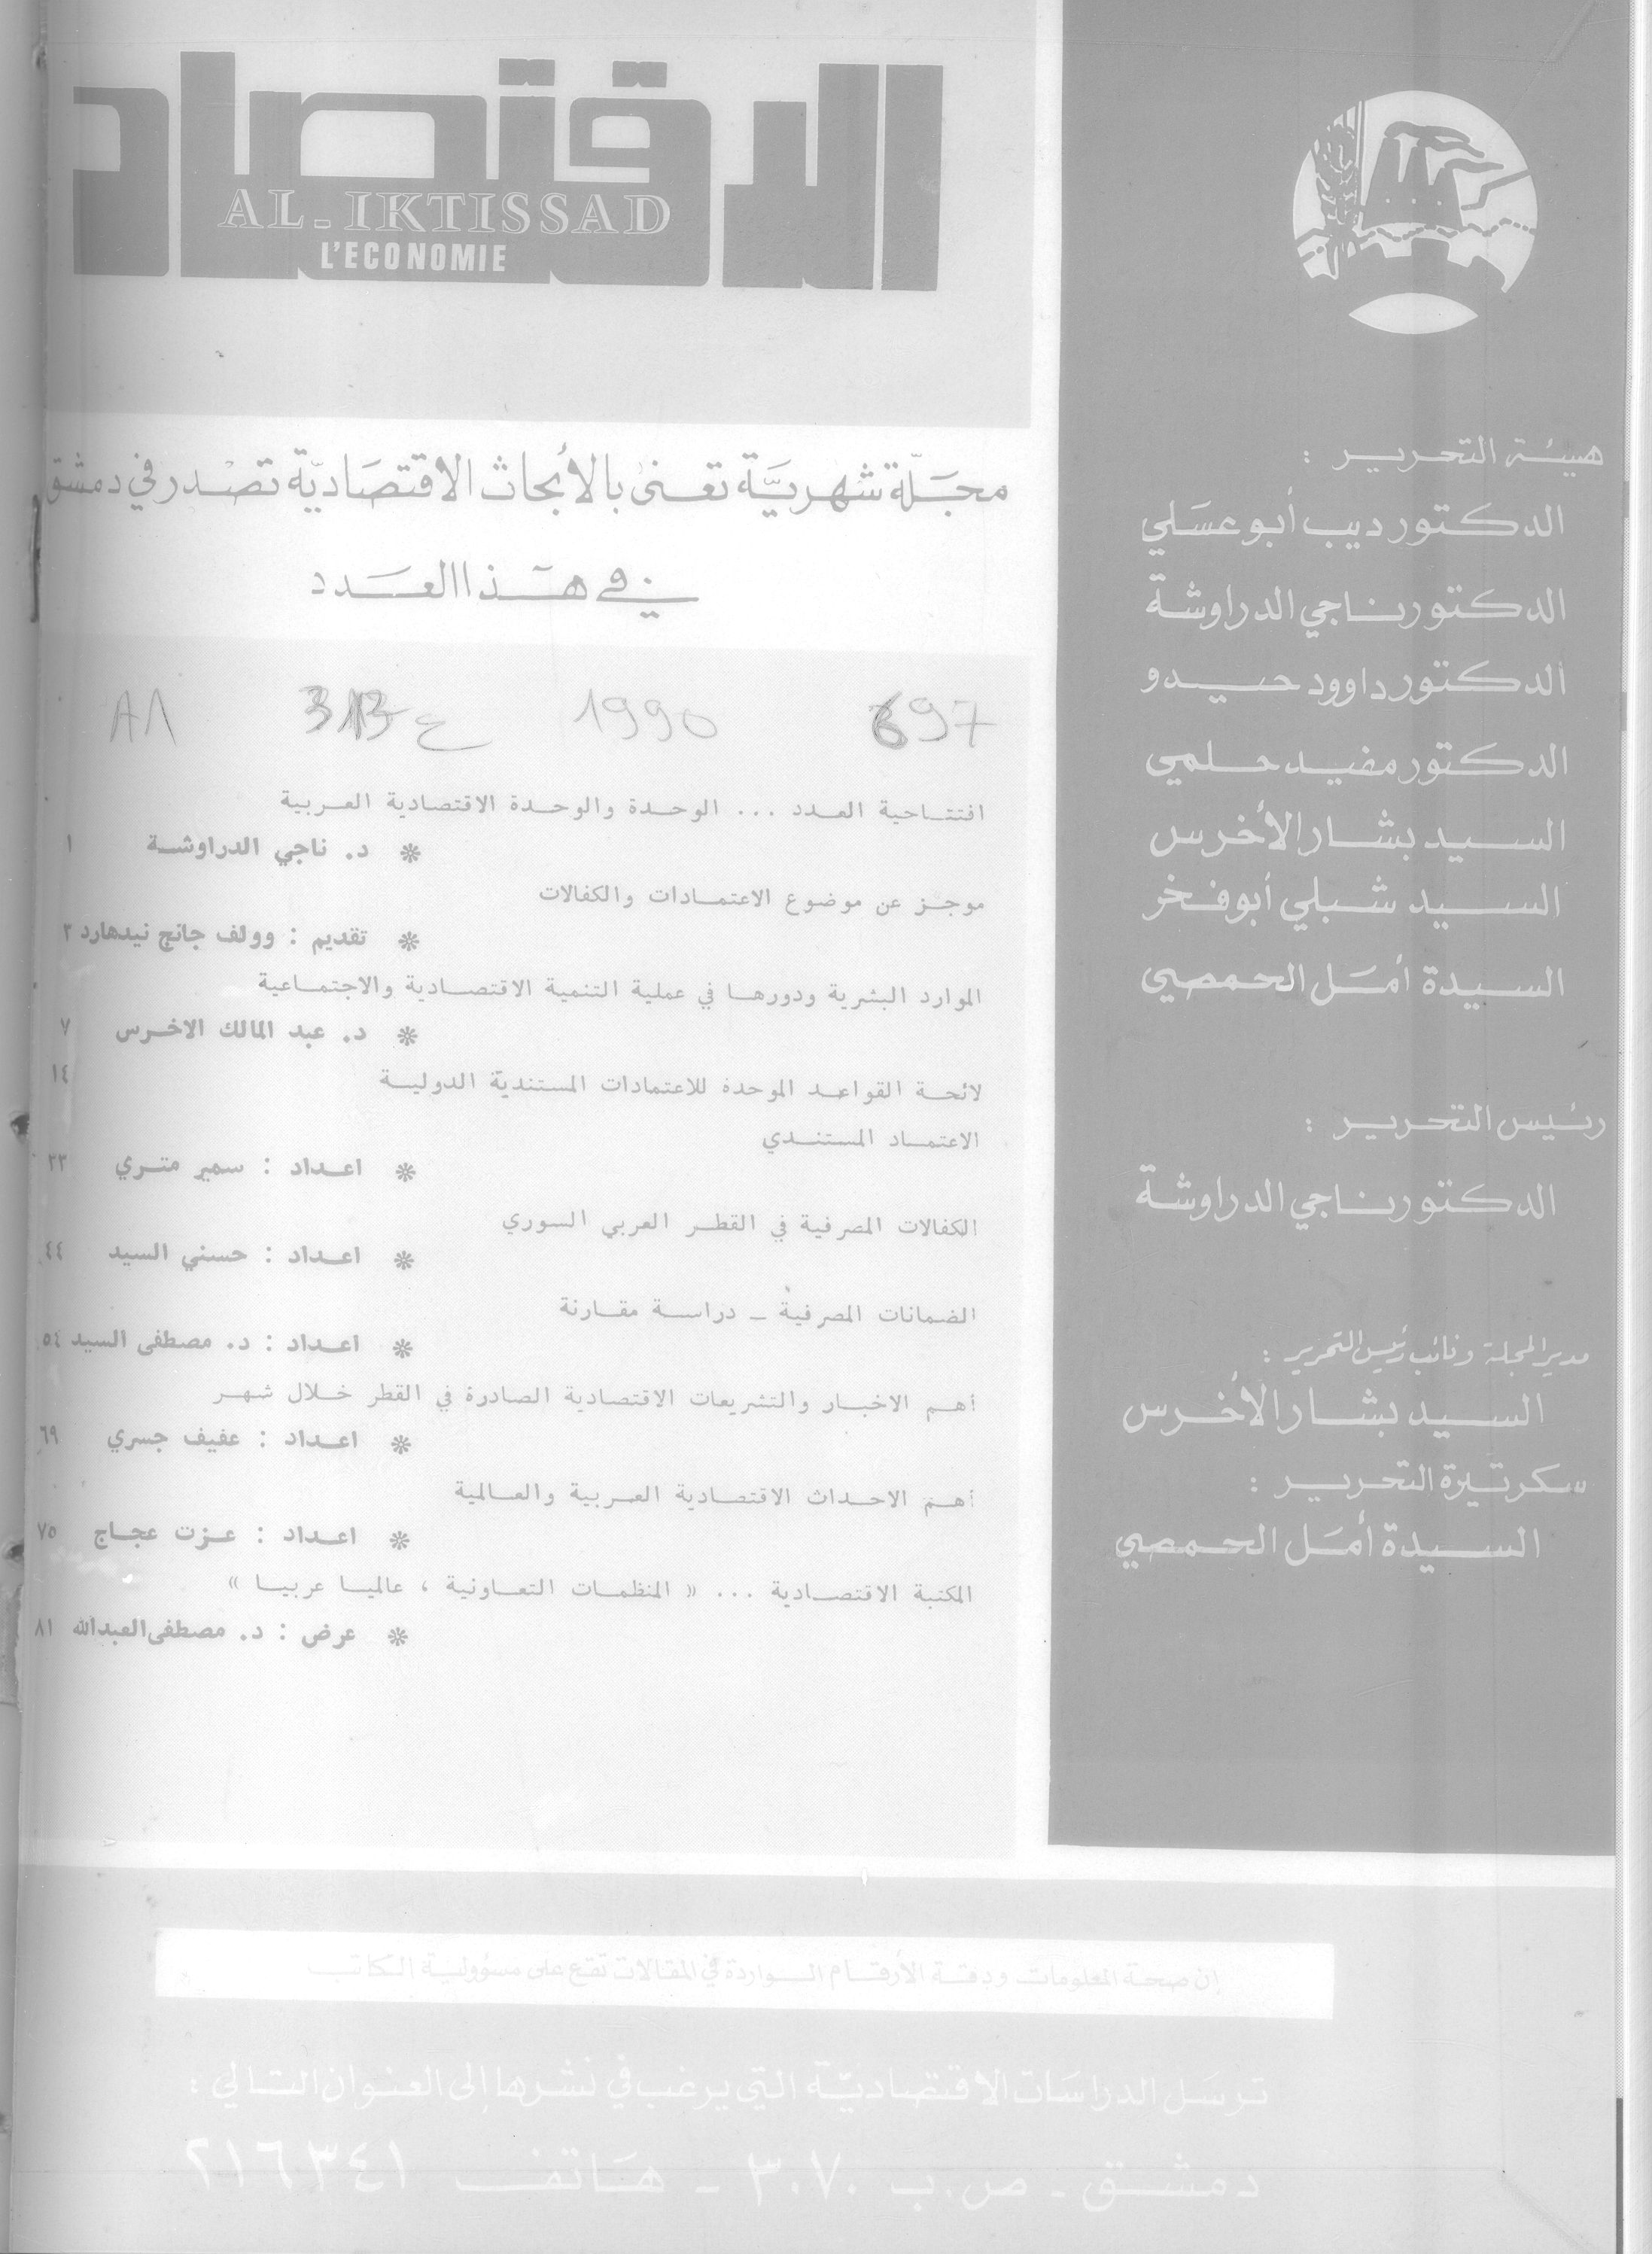 الاقتصاد
AL-IKTISSAD
L'ECONOMIE
مجلة شهرية تعنى بالأبحاث الاقتصادية تصدر في دمشق
في هذا العدد
697 1990 ع 313 ٨٨
افتتاحية العدد ... الوحدة والوحدة الاقتصادية العربية
* د. ناجي الدراوشة ١
موجز عن موضوع الاعتمادات والكفالات
* تقديم : وولف جانج نيدهارد ٣
الموارد البشرية ودورها في عملية التنمية الاقتصادية والاجتماعية
* د. عبد المالك الاخرس ٧
لائحة القواعد الموحدة للاعتمادات المستندية الدولية ١٤
الاعتماد المستندي
* اعداد : سمير متري ٣٣
الكفالات المصرفية في القطر العربي السوري
* اعداد : حسني السيد ٤٤
الضمانات المصرفية - دراسة مقارنة
* اعداد : د. مصطفى السيد ٥٤
أهم الاخبار والتشريعات الاقتصادية الصادرة في القطر خلال شهر
* اعداد : عفيف جسري ٦٩
أهم الاحداث الاقتصادية العربية والعالمية
* اعداد : عزت عجاج ٧٥
المكتبة الاقتصادية ... « المنظمات التعاونية ، عالميا عربيا »
* عرض : د. مصطفى العبدالله ٨١
هيئة التحرير :
الدكتور ديب أبو عسلي
الدكتور ناجي الدراوشة
الدكتور داوود حيدو
الدكتور مفيد حلمي
السيد بشار الأخرس
السيد شبلي أبو فخر
السيدة أمل الحمصي
رئيس التحرير :
الدكتور ناجي الدراوشة
مدير المجلة ونائب رئيس التحرير :
السيد بشار الأخرس
سكرتيرة التحرير :
السيدة أمل الحمصي
إن صحة المعلومات ودقة الأرقام الواردة في المقالات تقع على مسؤولية الكاتب
ترسل الدراسات الاقتصادية التي يرغب في نشرها إلى العنوان التالي :
دمشق - ص.ب ٣٠٧٠ - هاتف ٢١٦٣٤١